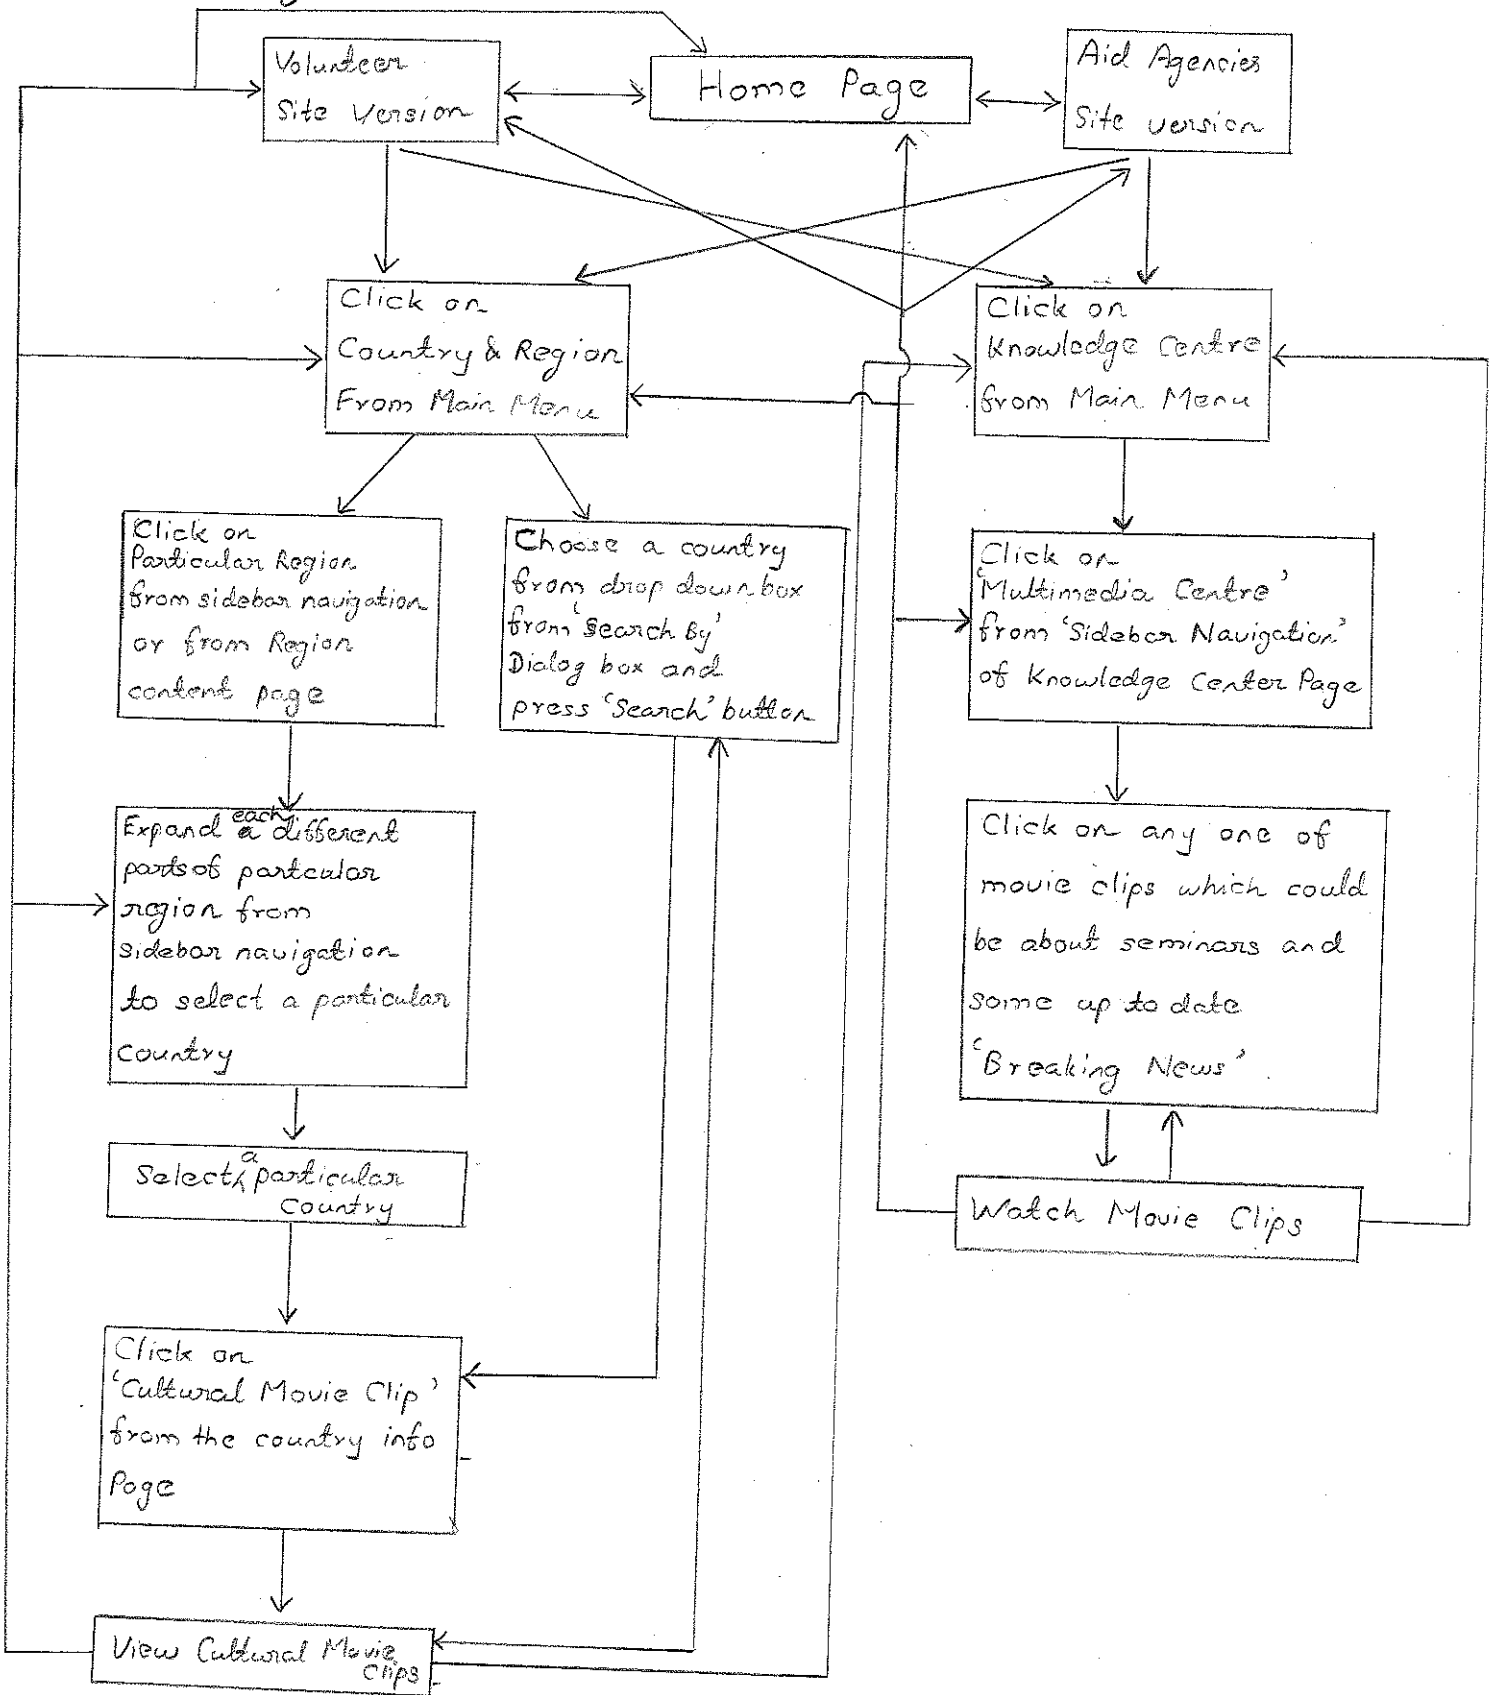 Volunteer
Site Version
Home Page
Aid Agencies
Site version
Click on
Country & Region
From Main Menu
Click on
Knowledge Centre
from Main Menu
Click on
Particular Region
from sidebar navigation
or from Region
content page
Choose a country
from drop down box
from 'Search By'
Dialog box and
press 'Search' button
Click on
'Multimedia Centre'
from 'Sidebar Navigation'
of Knowledge Center Page
Expand each different
parts of partcular
region from
sidebar navigation
to select a particular
Country
Click on any one of
movie clips which could
be about seminars and
some up to date
'Breaking News'
Select a particular
country
Watch Movie Clips
Click on
'Cultural Movie Clip'
from the country info
Page
View Cultural Movie
Clips